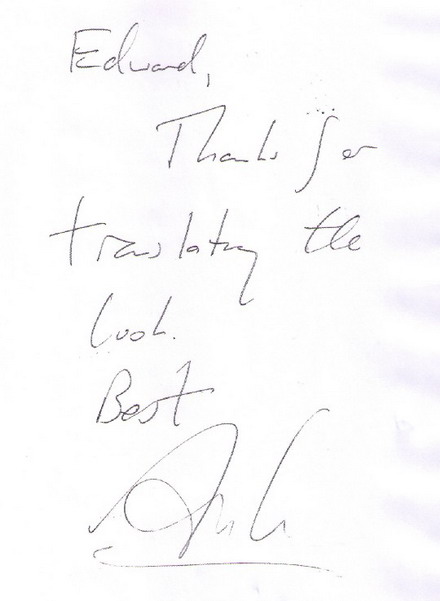 Edward,
Thanks for
translating the
book.
Best